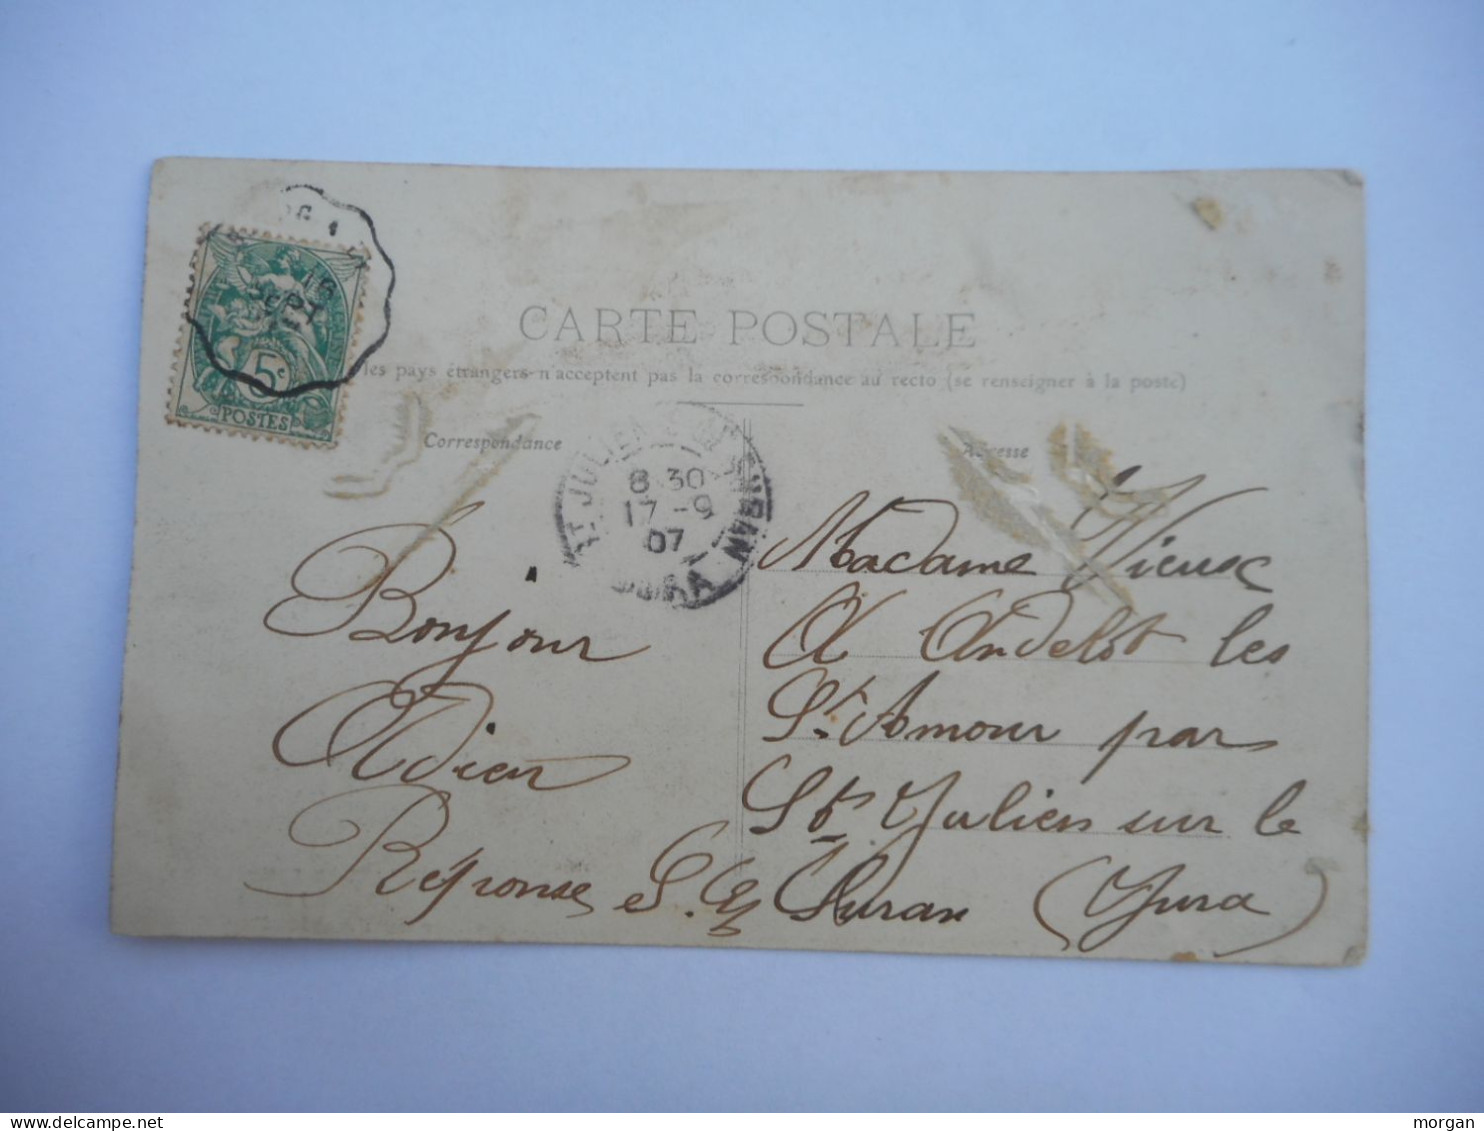 CARTE POSTALE
les pays étrangers n'acceptent pas la correspondance au recto (se renseigner à la poste)
Correspondance
Adresse
16
SEPT
5c
POSTES
ST JULIEN
8 30
17 - 9
07
JURA
Bonjour
Adieu
Réponse S.
Madame Vieux
A Andelot les
St Amour par
St Julien sur le
Suran (Jura)
delcampe.net
morgan